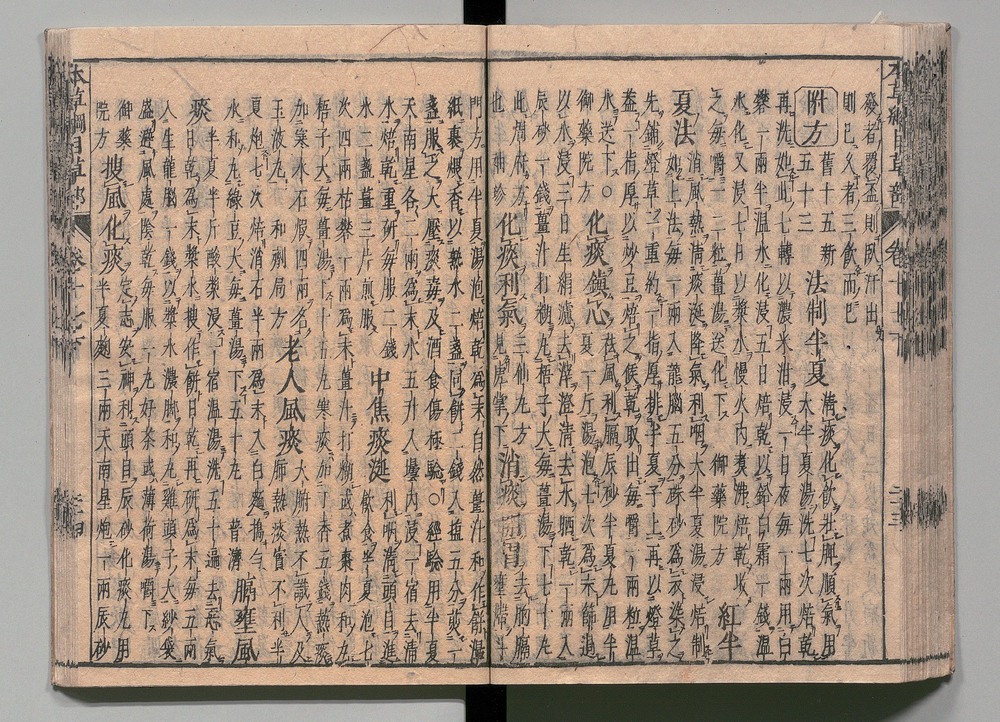 本草綱目草部 卷十七下
發者覆盃則臥汗出
即已久者三飲而已
附方 舊十五新
五十三 法制半夏 清痰化飲壯脾順氣用
大半夏湯洗七次焙乾
再洗如此七轉以濃米泔浸一日夜每一兩用白
礬一兩半溫水化浸五日焙乾以鉛白霜一錢溫
水化又浸七日以漿水慢火內煮沸焙乾收
之每嚼一二粒薑湯送化下 御藥院方 紅半
夏法 消風熱清痰涎降氣利咽大半夏湯浸焙制
如上法每一兩入龍腦五分硃砂為衣染之
先鋪燈草一重約一指厚排半夏于上再以燈草
蓋一指厚以炒豆焙之候乾取出每嚼一兩粒溫
水送下○
御藥院方 化痰鎮心 祛風利膈辰砂半夏丸用半
夏一斤湯泡七次為末篩過
以水浸三日生絹濾去滓澄清去水晒乾一兩入
辰砂一錢薑汁打糊丸梧子大每薑湯下七十丸
此周府方 化痰利氣 三仙丸方
見虎掌下 消痰開胃 去胸膈
壅滯斗
門方用半夏湯泡焙乾為末自然薑汁和作餅濕
紙裹煨香以熟水二盞同餅二錢入鹽五分煎一
盞服之大壓痰毒及酒食傷極驗○經驗用半夏
天南星各二兩為末水五升入壜內浸一宿去清
水焙乾重研每服二錢
水二盞薑三片煎服 中焦痰涎 利咽清頭目進
飲食半夏泡七
次四兩枯礬一兩為末薑汁打糊或煮棗肉和丸
梧子大每薑湯下十五丸寒痰加丁香五錢熱痰
加寒水石煅四兩名
玉液丸 和劑局方 老人風痰 大腑熱不識人及
肺熱痰實不利半
夏炮七次焙消石半兩為末入白麵搗勻
水和丸綠豆大每薑湯下五十丸 普濟 膈壅風
痰 半夏半斤酸漿浸一宿溫湯洗五十遍去惡氣
日乾為末漿水搜作餅日乾再研為末每五兩
入生龍腦一錢以漿水濃腳和丸雞頭子大紗袋
盛避風處陰乾每服一丸好茶或薄荷湯嚼下
御藥
院方 搜風化痰 定志安神利頭目辰砂化痰丸用
半夏麴三兩天南星炮一兩辰砂
本草綱目草部 卷十七下 三十四